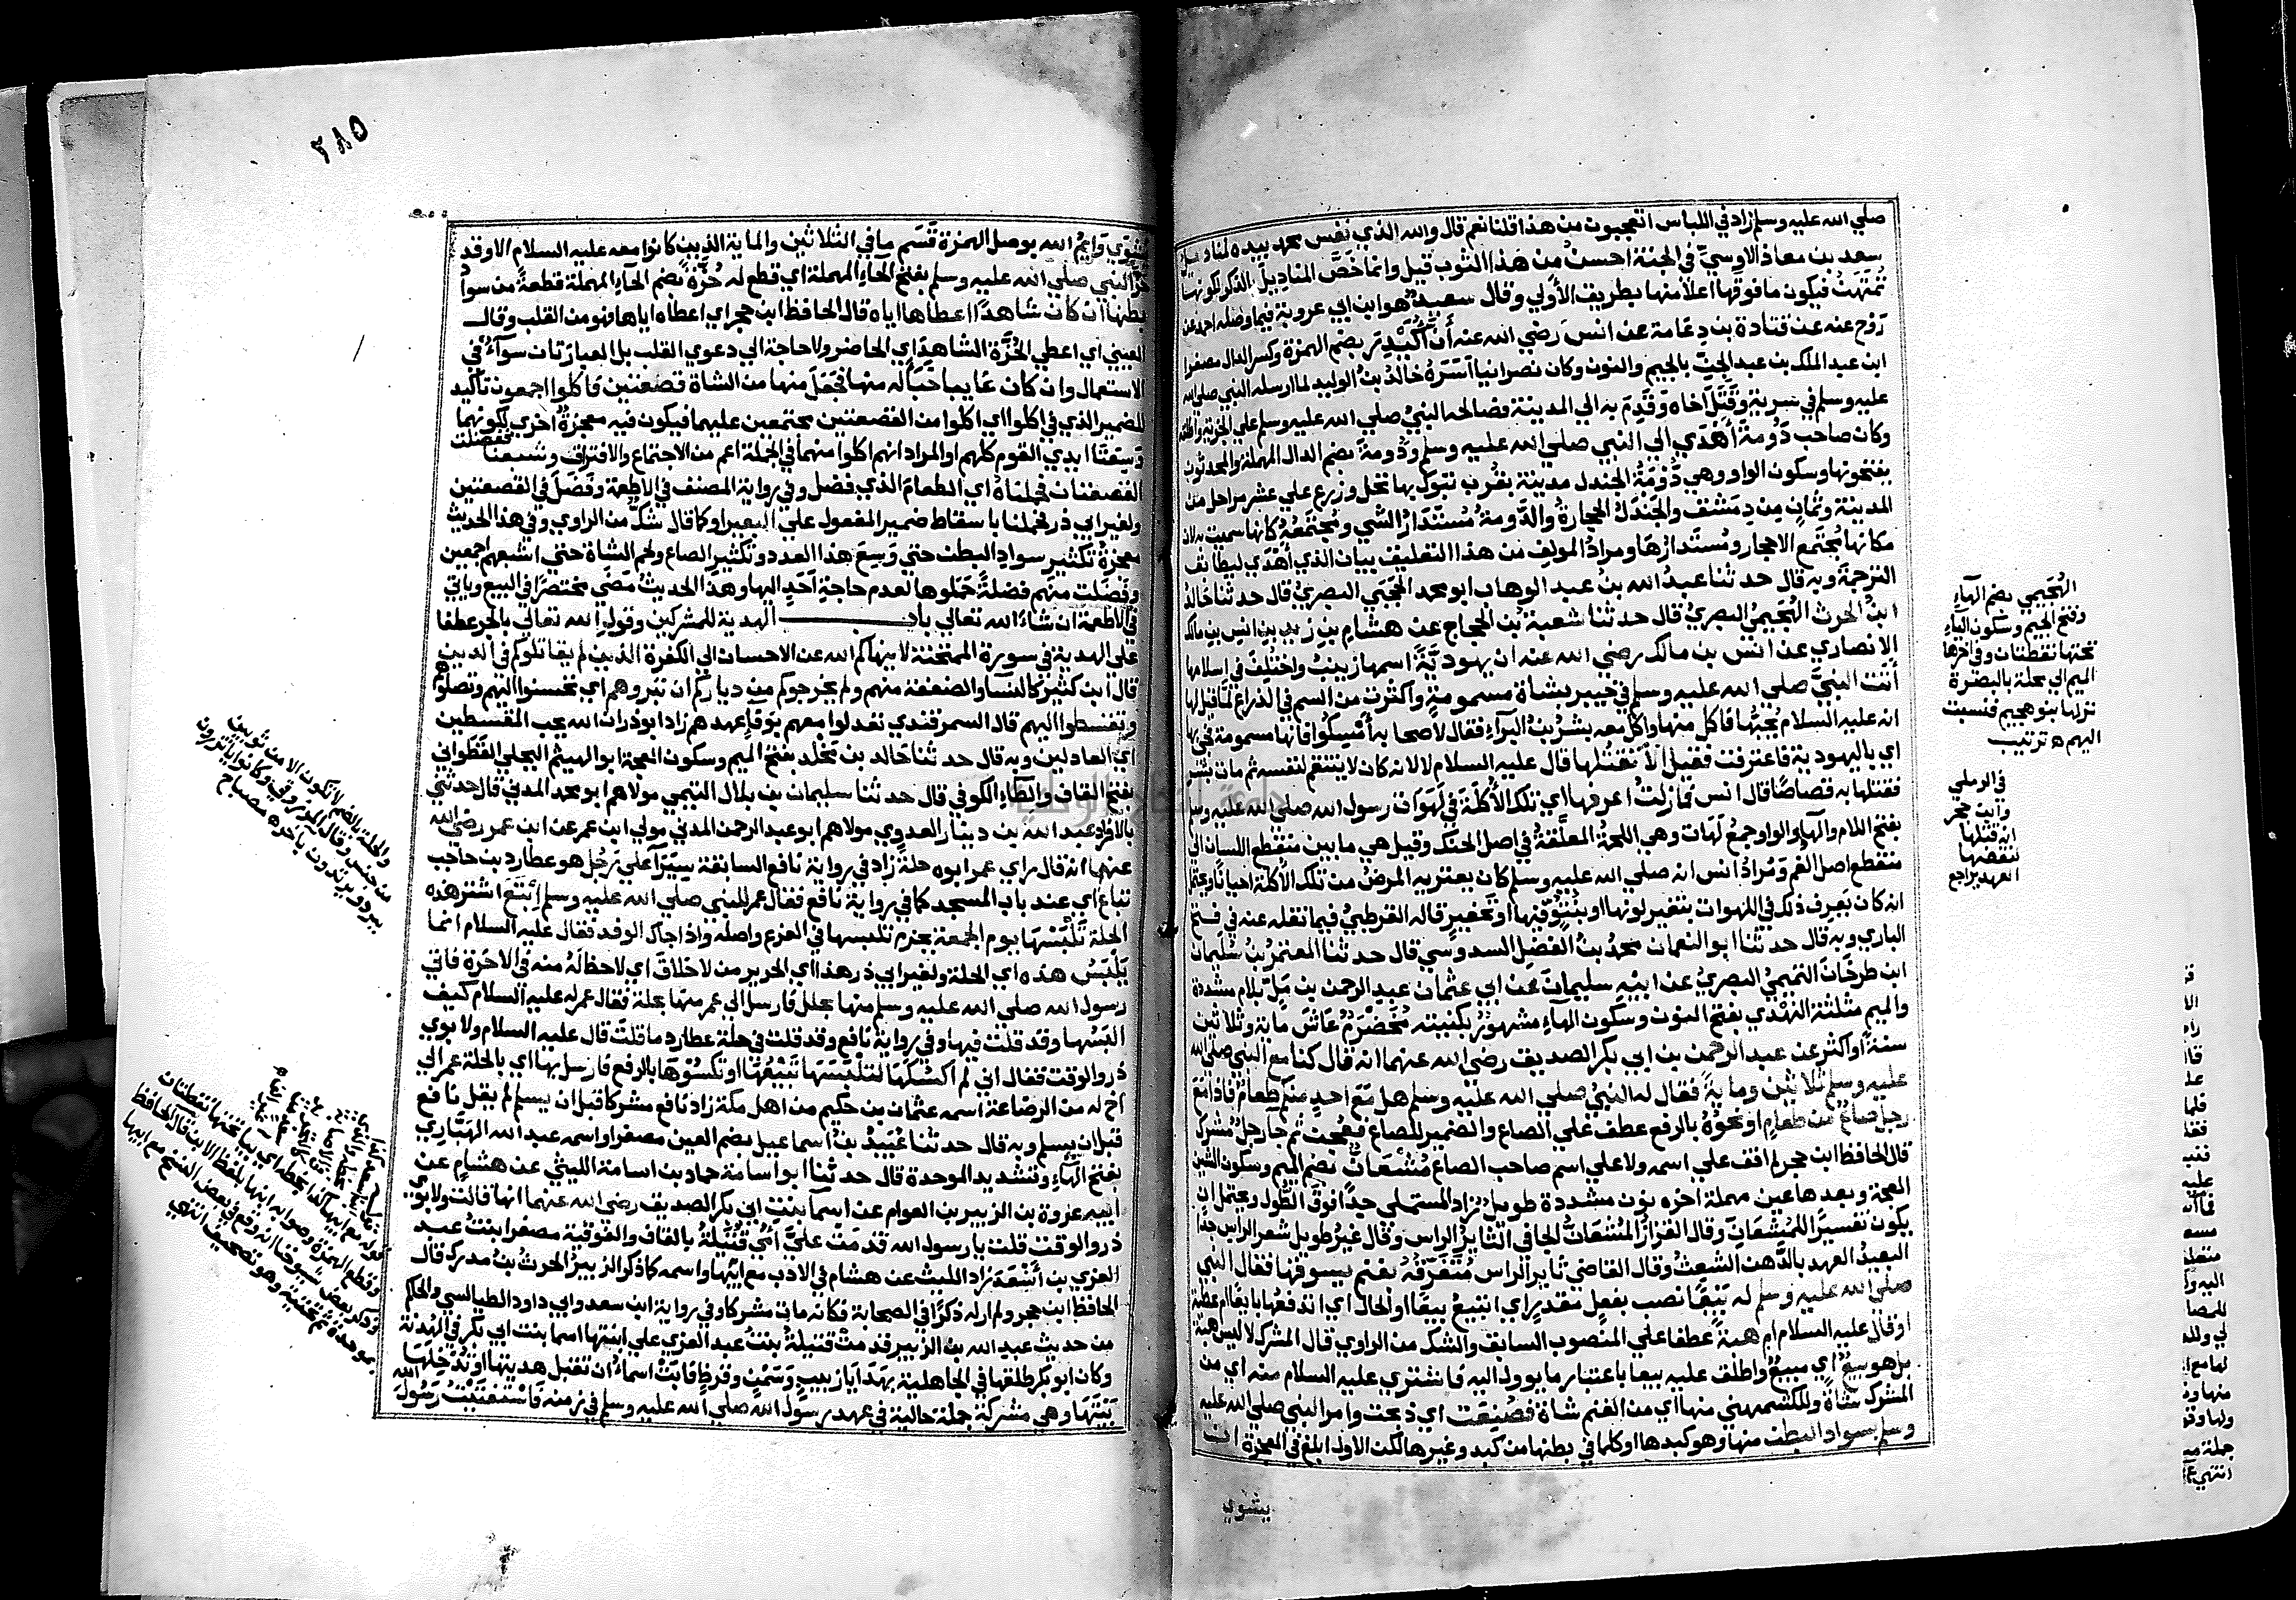 صلي الله عليه وسلم زاد في اللباس اتعجبون من هذا قلنا نعم قال والله الذي نفس محمد بيده لمناديل
سعد بن معاذ الاوسيّ في الجنة احسنُ من هذا الثوب قيل وانما خَصَّ المناديلَ بالذكر لكونها
تُمتَهَنُ فيكون ما فوقها اعلا منها بطريق الأَولي وقال سعيدٌ هو ابن ابي عروبة فيما وصله احمد عن
رَوْح عنه عن قتادة بن دِعامة عن انسٍ رضي الله عنه أن أُكَيْدِرَ بضم الهمزة وكسر الدال مصغرا
ابن عبد الملك بن عبد الجن بالجيم والنون وكان نصرانيا اَسَرَهُ خالدُ بنُ الوليد لما ارسله النبي صلي الله
عليه وسلم في سرية وقَتَل اخاه وقَدِمَ به الي المدينة فصالحه النبيُ صلي الله عليه وسلم علي الجزية واطلقه
وكان صاحب دُومةَ أَهْدَي الي النبي صلي الله عليه وسلم ودُومة بضم الدال المهملة والمحدثون
يفتحونها وسكون الواو وهي دُومَةُ الجندل مدينة بقُرب تبوك بها نخل وزرع علي عشر مراحل من
المدينة وثمانٍ من دِمَشق والجَندَلُ الحجارةُ والدُّومةُ مُسْتَدَارُ الشي ومُجتَمَعُهُ كانها سميت به لان
مكانها مُجتَمع الاحجار ومُستَدارُها ومرادُ المولف من هذا التعليق بيان الذي أهْدَي ليطابق
الترجمة وبه قال حدثنا عبدُ الله بنُ عبد الوهاب ابو محمد الحَجَبي البصريُ قال حدثنا خالدُ
ابنُ الحرث الهُجَيميُ البصريُ قال حدثنا شعبةُ بنُ الحجاج عن هشامِ بنِ زيد بن انس بن مالك
الانصاري عن انس بن مالك رضي الله عنه ان يهوديَّةً اسمها زينبُ واختُلِفَ في اسلامها
أتَت النبيَّ صلي الله عليه وسلم في خيبر بشاة مسمومةٍ واكثرت من السم في الذراع لمّا قيل لها
انه عليه السلام يُحِبُّها فاكل منها واكل معه بشرُ بنُ البَرآءِ فقال لاصحابه أَمْسِكُوا فانها مسمومة فجيء بها
اي باليهودية فاعترفت فقيل ألا نَقتُلُها قال عليه السلام لا لانه كان لا ينتقم لنفسه ثم مات بشر
فقتلها به قصاصًا قال انس فمازلتُ اعرفها اي تلك الأُكلَةَ في لَهَوَات رسول الله صلي الله عليه وسلم
بفتح اللام والهاء والواو جمعُ لَهَات وهي اللحمةُ المعلَّقةُ في اصل الحنك وقيل هي ما بين منقطع اللسان الي
منقطع اصل الفم ومُرادُ انس انه صلي الله عليه وسلم كان يعتريه المرضُ من تلك الأكلة احيانًا ويحتمل
انه كان يَعرِف ذلك في اللهوات بتغير لونها او بنُتُوِّ فيها او تحفير قاله القرطبيُ فيما نقله عنه في فتح
الباري وبه قال حدثنا ابو النعمان محمدُ بنُ الفَضل السدوسي قال حدثنا المعتمرُ بنُ سُلَيمان
ابن طرخان التيميُ البصريُ عن ابيه سليمان عن ابي عثمان عبدِ الرحمن بن مَلّ بلام مشددة
والميم مثلثة النَهْدي بفتح النون وسكون الهاء مشهورٌ بكنيته مُخَضْرَمٌ عَاشَ ماية وثلاثين
سنةً أو اكثر عن عبد الرحمن بن ابي بكر الصديق رضي الله عنهما انه قال كنا مع النبي صلي الله
عليه وسلم ثلاثين ومايةً فقال له النبيُ صلي الله عليه وسلم هل مَعَ احدٍ منكم طعامٌ فاذا مَعَ
رجل صاعٌ من طعام او نحوُهُ بالرفع عطف علي الصاع والضمير للصاع فعُجِنَ ثم جآ رجلٌ مُشركٌ
قال الحافظ ابن حجر لم اقف علي اسمه ولا علي اسم صاحب الصاع مُشْعَانٌّ بضم الميم وسكون الشين
المعجمة وبعدها عين مهملة اخره نون مشددة طويلٌ زاد المستملي جِدًّا فوق الطُول ويحتمل ان
يكون تفسيرًا للمُشعَانِّ وقال القزازُ المُشعَانُّ الجافي الثايرُ الراس وقال غيرُهُ طويل شعر الراس جدًا
البعيدُ العهدِ بالدَّهن الشَّعِثُ وقال القاضي ثاير الراس مُتَفَرِّقُهُ بغنم يسوقها فقال النبي
صلي الله عليه وسلم له بَيْعًا نصب بفعلٍ مقدرٍ اي اتبيعُ بيعًا او الحال اي اتدفعها بايعًا ام عطيّة
او قال عليه السلام ام هبةً عطفًا علي المنصوب السابق والشك من الراوي قال المشرك لا ليس هبة
بل هو بيعٌ اي مبيعٌ واطلق عليه بيعا باعتبار ما يوول اليه فاشتري عليه السلام منه اي من
المشرك شاةً وللكشميهني منها اي من الغنم شاة فصُنِعَت اي ذبحت وامر النبي صلي الله عليه
وسلم بسواد البطن منها وهو كبدها او كلما في بطنها من كبد وغيرها لكن الاول ابلغ في المعجزة ان
يشوي
الهُجَيمي بضم الهاءِ
وفتح الجيم وسكون الياءِ
تحتها نقطتان وفي اخرها
الميم الي محلة بالبصرة
نزلها بنو هجيم فنسبت
اليهم ه ترتيب
في الرملي
وابن حجر
انه قتلها
لنقضها
العهد يراجع
٢٨٥
يُشوَي وَايمُ الله بوصل الهمزة قَسَم ما في الثلاثين والماية الذين كانوا معه عليه السلام الا وقد
حَزَّ النبي صلي الله عليه وسلم بفتح الحاءِ المهملة اي قطع له حُزَّةً بضم الحاءِ المهملة قطعةً من سواد
بطنها ان كان شاهدًا اعطاها اياه قال الحافظ ابن حجر اي اعطاه اياها فهو من القلب وقال
العيني اي اعطي الحُزَّة الشاهدَ اي الحاضر ولا حاجة الي دعوي القلب بل العبارتان سوآءٌ في
الاستعمال وان كان غايبا خَبَأ له منها فجَعَلَ منها من الشاة قصعتين فاكلوا اجمعون تاكيد
للضمير الذي في اكلوا اي اكلوا من القصعتين مجتمعين عليهما فيكون فيه معجزةٌ اخري لكونهما
وَسِعَتا ايدي القوم كلهم او المراد انهم اكلوا منهما في الجملة اعم من الاجتماع والافتراق وشبعنا ففضلت
القصعتان فحملناهُ اي الطعامَ الذي فضل وفي رواية المصنف في الاطعمة وفَضَلَ في القصعتين
ولغير ابي ذر فحملنا باسقاط ضمير المفعول علي البعير او كما قال شكٌّ من الراوي وفي هذا الحديث
معجزةُ تكثير سواد البطن حتي وَسِعَ هذا العدد وتكثير الصاع ولحم الشاة حتي اشبعهم اجمعين
وفَضَلَت منهم فضلةٌ حَمَلوها لعدم حاجةِ احدٍ اليها وهذا الحديثُ مَضَي مختصرًا في البيع وياتي
في الاطعمة ان شاءَ الله تعالي باب الهدية للمشركين وقولِ الله تعالي بالجر عطفا
علي الهدية في سورة الممتحنة لا ينهاكم الله عن الاحسان الي الكفرة الذين لم يقاتلوكم في الدين
قال ابن كثير كالنسآ والضعفة منهم ولم يخرجوكم من دياركم ان تبروهم اي تحسنوا اليهم وتصلوهم
وتقسطوا اليهم قال السمرقندي تعدلوا معهم بوفآءِ عهدهم زاد ابو ذر ان الله يحب المقسطين
اي العادلين وبه قال حدثنا خالد بن مخلد بفتح الميم وسكون المعجمة ابو الهيثم البجلي القَطَواني
بفتح القاف والطاءِ الكوفي قال حدثنا سليمان بن بلال التيمي مولاهم ابو محمد المدني قال حدثني
بالافراد عبد الله بن دينار العدوي مولاهم ابو عبد الرحمن المدني مولي ابن عمر عن ابن عمر رضي الله
عنهما انه قال راي عمر ابوه حلةً زاد في رواية نافع السابقة سِيَرَآ علي رَجُلٍ هو عطارد بن حاجب
تباع اي عند باب المسجد كما في رواية نافع فقال عمر للنبي صلي الله عليه وسلم اِبْتَعْ اشتر هذه
الحلة تَلْبَسْهَا يوم الجمعة بجزم تلبسها في الفرع واصله واذا جاك الوفد فقال عليه السلام انما
يَلْبَسُ هذه اي الحلة ولغير ابي ذر هذا اي الحرير من لا خلاق اي لا حظ لَهُ منه في الاخرة فاتي
رسول الله صلي الله عليه وسلم منها بحلل فارسل الي عمر منها بحلة فقال عمر له عليه السلام كيف
البَسُها وقد قلت فيها وفي رواية نافع وقد قلت في حلة عطارد ما قلت قال عليه السلام ولابوي
ذر والوقت فقال اني لم اكسُكَهَا لتَلْبَسَهَا تَبِيْعُهَا او تكسُوْهَا بالرفع فارسل بها اي بالحلة عمر الي
اخ له من الرضاعة اسمه عثمان بن حكيم من اهل مكة زاد نافع مشركا قبل ان يسلم لم يقل نافع
قبل ان يسلم وبه قال حدثنا عُبَيدُ بنُ اسماعيل بضم العين مصغرا واسمه عبد الله الهَبّاري
بفتح الهاءِ وتشديد الموحدة قال حدثنا ابو اسامة حماد بن اسامة الليثي عن هشام عن
ابيه عروة بن الزبير بن العوام عن اسمآ بنتِ ابي بكر الصديق رضي الله عنهما انها قالت ولابوي
ذر والوقت قلت يا رسول الله قدمَتْ عليَّ اُمّي قُتَيْلَةُ بالقاف والفوقية مصغرا بنتُ عبد
العزي بن اَسْعَدَ زاد الليث عن هشام في الادب مع ابيها واسمه كما ذكر الزبيرُ الحرثُ بنُ مدرك قال
الحافظ ابن حجر ولم ار له ذكرًا في الصحابة فكانه مات مشركا وفي رواية ابن سعد وابي داود الطيالسي والحاكم
من حديث عبد الله بن الزبير قدمت قتيلةُ بنتُ عبد العزي علي ابنتها اسما بنت ابي بكر في الهُدنة
وكان ابو بكر طلقها في الجاهلية بهَدَايَا زبيبٍ وسَمْنٍ وقرظٍ فابَتْ اسماءُ ان تقبل هديتها او تُدْخِلَهَا
بَيْتَهَا وهي مشركة جملة حالية في عهد رسول الله صلي الله عليه وسلم في زمنه فاستفتَيْتُ رَسُولَ الله
والحلة بالضم لا تكون الا من ثوبين
من جنس وقال المرزوقي وكانوا ياتزرون
ببرد ويرتدون باخر ه مصباح
قوله مع ابيها كذا بخطه اي بيا تحتها نقطتان
وقطع الهمزة وصوابه ابنها بلفظ الابن قال الحافظ
وذكر بعض شيوخنا انه وقع في بعض النسخ مع ابيها
بموحدة ثم تحتية وهو تصحيف انتهي